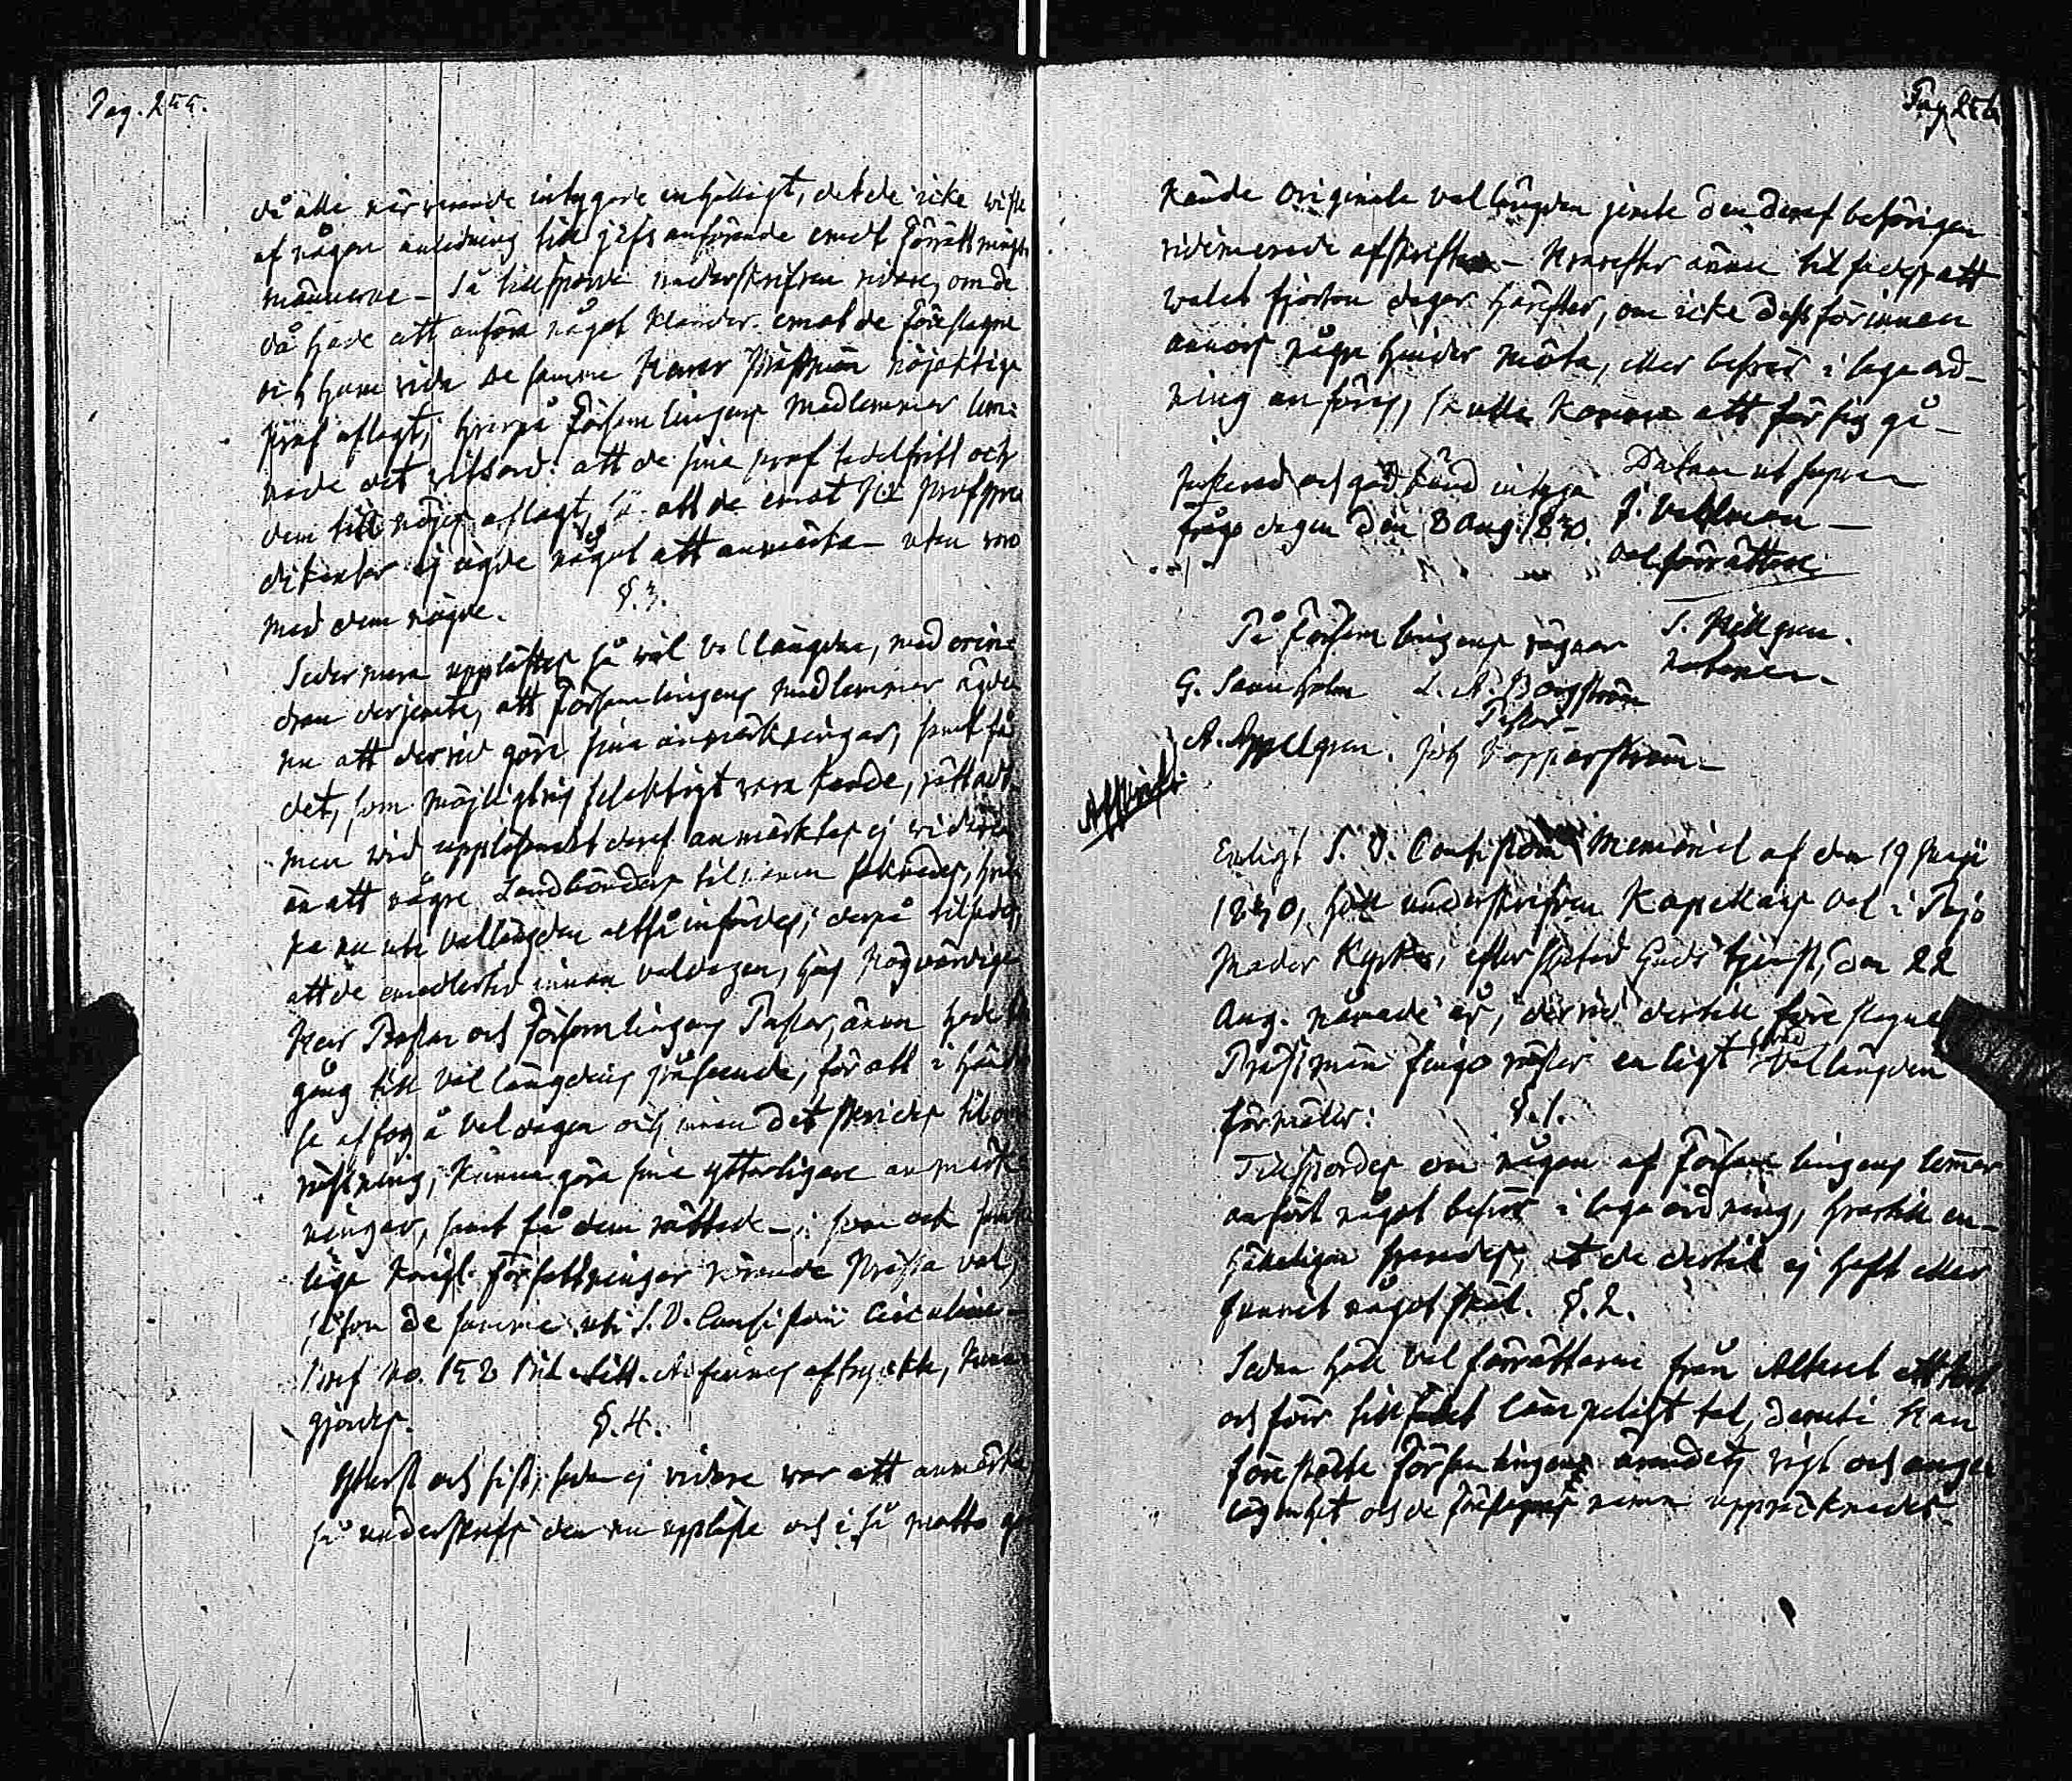 Pag. 255.
då alle närwarande intygade enhälligt, det de icke wiste
af någon anledning till jäfs anförande emot Förrättnings
männerne – Så tillsporde underskrifven vidare, om de
då hade att anföra något klander emot de föreslagne
och huru vida de samme Herrar Prästmän nöjaktige
prof aflagt; hvarpå Församlingens medlemmar lem-
nade det vitsord: att de sina prof tadelfritt och
dem till nöjes aflagt, så att de emot H.r. Profpre
dikanter ej ägde något att anmärka – utan voro
med dem nögde. §. 3.
Sedermera upplästes så wäl Vallängden, med erin-
dran derjemte, att Församlingens medlemmar ägde
nu att dervid göra sina anmärkningar, samt få
det, som möjligtvis felaktigt vara kunde, rättadt.
men wid uppläsandet deraf anmärktes ej widare
än att några Landbönders til namn saknades, hvil
ka nu uti vallängden altså infördes; derpå tilsades,
att de emedlertid innan valdagen, hos Högvördige
Herr Prosten och Församlingens Pastor, ännu hade
gång till Vallängdens påseende, för att i händ
se af fog å Valdagen och innan det skrides til om
röstning, kunna göra sina ytterligare anmärk
ningar, samt få dem rättade – : som ock samt
lige Kongl. författningar rörande Prästa val,
såsom de samme uti S. V. Consistorii Circulaire
Bref No. 152 Bil. Litt. A. finnas aftryckte, kun
gjordes. §. 4.
Ytterst och sist, sedan ej vidare war att anmärka
så underskrefs den nu uppläste och i så matto
Pag 256
kände originale vallängden jemte den deraf behörigen
vidimerade afskriften – Hvarefter ännu til sades, att
walet fjorton dagar härefter, om icke dess förinnan
annors några hinder möta, eller besvär i laga ord-
ning anföras, skulle komma att för sig gå –
Justerad och god känd intyga Datum ut supra
fråge dagen den 8 Aug. 1830. J. Wallman –
Valförrättare
På Församlingens vägnar S. Hellgren.
Notarien.
G. Sannholm L. A. Borgström
Pastor
A. Appelgren. Joh Kopparström –
Afskrift.
Enligt S. V. Consistorii Memorial af den 19 Maji
1830, höll underskrifven Kapellans val i
Mader Kyrka, efter slutad Gudstjenst, den 22
Aug. nämnde år, dervid dertill föreslagna
Prästmän fingo röster enligt hvad Vallängden
förmäler: §. 1.
Tillspordes om någon af Församlingens lemmar
anfört något besvär i laga ordning, hvartill en-
hälleligen svarades, at de dertill ej haft eller
funnit något skäl. §. 2.
Sedan höll Valförrättaren från Altaret ett kort
och för tillfället lämpeligt tal, deruti han
föreställte Församlingens ärendets vigt och ange
lägenhet och de föreslagnes namn uppräknades.